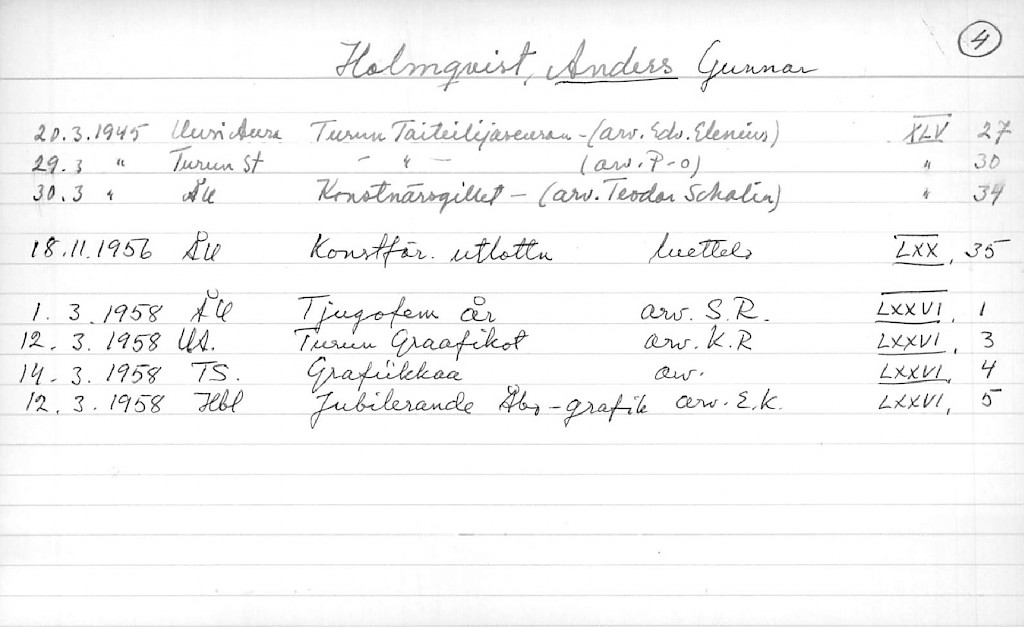 4
Holmqvist, Anders Gunnar
20.3.1945 Uusi Aura Turun Taiteilijaseuran - (arv. Edv. Elenius) XLV 27
29.3 " Turun St - " - (arv. P-o) " 30
30.3 " ÅU Konstnärsgillet - (arv. Teodor Schalin) " 34
18.11.1956 ÅU Konstför. utlottn luettelo LXX, 35
1. 3. 1958 ÅU Tjugofem år arv. S.R. LXXVI, 1
12. 3. 1958 UA. Turun Graafikot arv. K.R LXXVI, 3
14. 3. 1958 TS. Grafiikkaa arv. LXXVI, 4
12. 3. 1958 Hbl Jubilerande Åbo-grafik arv. E.K. LXXVI, 5